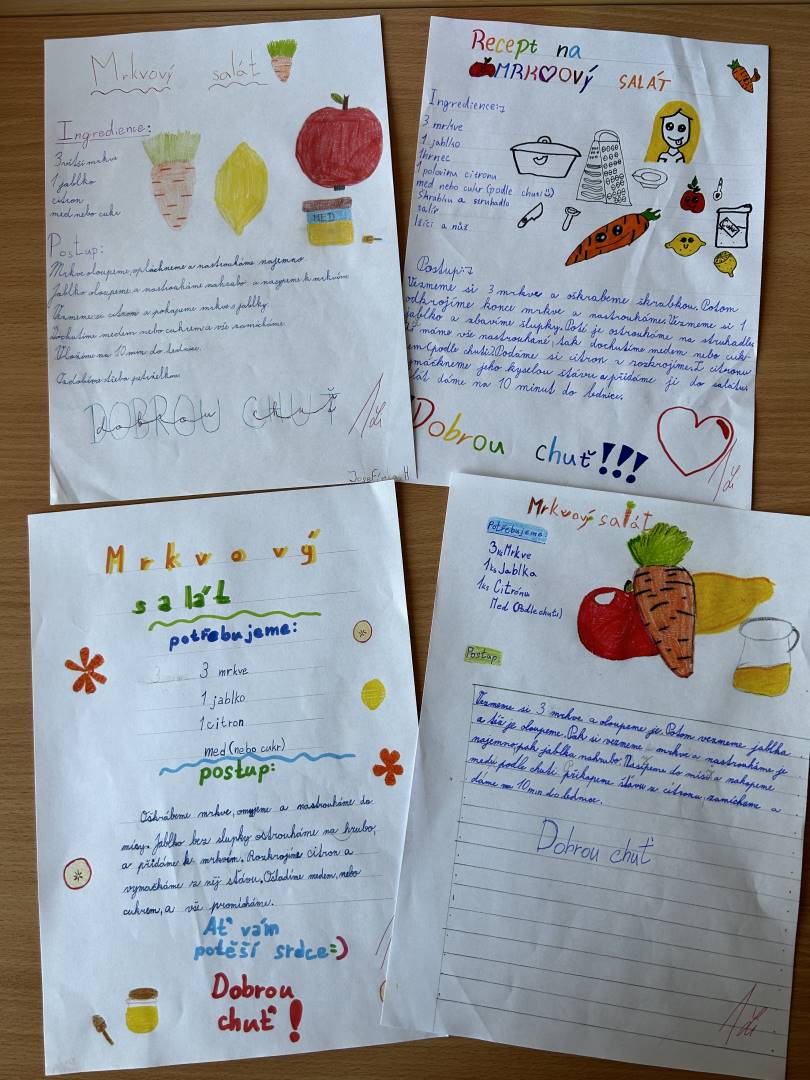 Mrkvový salát
Ingredience:
3 větší mrkve
1 jablko
citron
med nebo cukr
MED
Postup:
Mrkve oloupeme, opláchneme a nastrouháme najemno
Jablko oloupeme a nastrouháme nahrubo a nasypeme k mrkvím
Vezmeme si citron a pokapeme mrkvo s jablky
Dochutíme medem nebo cukrem a vše zamícháme.
Vložíme na 10 min do lednice.
Ozdobíme třeba petrželkou
DOBROU CHUŤ
dobrou chuť
Recept na
MRKVOVÝ SALÁT
Ingredience:
3 mrkve
1 jablko
1 hrnec
1 polovina citronu
med nebo cukr (podle chuti)
škrabku a struhadlo
talíř
lžíci a nůž
Postup:
Vezmeme si 3 mrkve a oškrabeme škrabkou. Potom
odkrojíme konce mrkve a nastrouháme. Vezmeme si 1
jablko a zbavíme slupky. Poté je ostrouháme na struhadle.
máme vše nastrouhané, tak dochutíme medem nebo cukr-
em (podle chuti). Podáme si citron a rozkrojíme. Z citronu
vymáčkneme jeho kyselou šťávu a přidáme ji do salátu.
salát dáme na 10 minut do lednice.
Dobrou chuť!!!
Mrkvový
salát
potřebujeme:
3 mrkve
1 jablko
1 citron
med (nebo cukr)
postup:
Oškrábeme mrkve, omyjeme a nastrouháme do
mísy. Jablko bez slupky ostrouháme na hrubo,
a přidáme k mrkvím. Rozkrojíme citron a
vymačkáme z něj šťávu. Osladíme medem, nebo
cukrem, a vše promícháme.
Ať vám
potěší srdce=)
Dobrou
chuť!
Mrkvový salát
Potřebujeme:
3 ks Mrkve
1 ks Jablka
1 ks Citrónu
Med (Podle chuti)
Postup:
Vezmeme si 3 mrkve a oloupeme je. Potom vezmeme jablka
a též je oloupeme. Pak si vezmeme mrkvi a nastrouháme je
najemno, pak jablka nahrubo. Nasypeme do mísi a nakapeme
medu podle chuti. Přikapeme šťávu z citronu, zamícháme a
dáme na 10 min do lednice.
Dobrou chuť